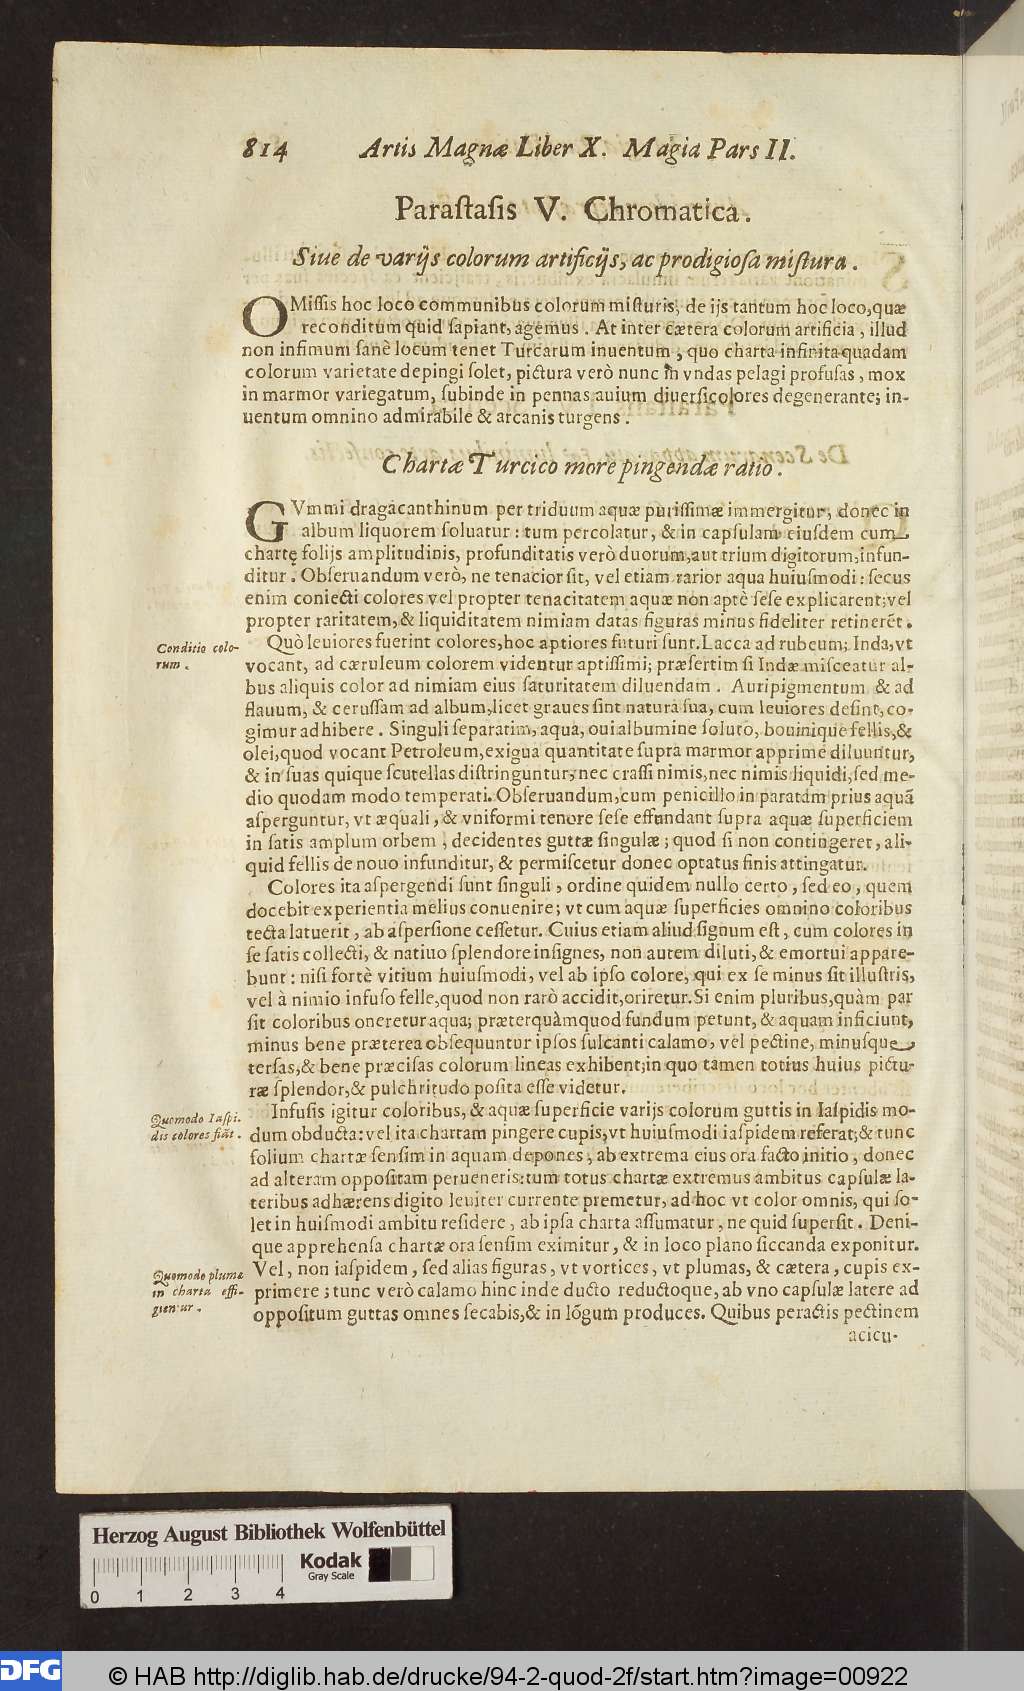 814 Artis Magnæ Liber X. Magia Pars II.
Paraſtaſis V. Chromatica.
Siue de varijs colorum artificijs, ac prodigioſa miſtura.
OMiſſis hoc loco communibus colorum miſturis, de ijs tantum hoc loco, quæ
reconditum quid ſapiant, agemus. At inter cætera colorum artificia, illud
non infimum ſanè locum tenet Turcarum inuentum, quo charta infinita quadam
colorum varietate depingi ſolet, pictura verò nunc in vndas pelagi profuſas, mox
in marmor variegatum, ſubinde in pennas auium diuerſicolores degenerante; in-
uentum omnino admirabile & arcanis turgens.
Chartæ Turcico more pingendæ ratio.
GVmmi dragacanthinum per triduum aquæ puriſſimæ immergitur, donec in
album liquorem ſoluatur: tum percolatur, & in capſulam eiuſdem cum
chartę folijs amplitudinis, profunditatis verò duorum, aut trium digitorum, infun-
ditur. Obſeruandum verò, ne tenacior ſit, vel etiam rarior aqua huiuſmodi: ſecus
enim coniecti colores vel propter tenacitatem aquæ non aptè ſeſe explicarent; vel
propter raritatem, & liquiditatem nimiam datas figuras minus fideliter retinerēt.
Conditio colo-
rum.
Quò leuiores fuerint colores, hoc aptiores futuri ſunt. Lacca ad rubeum; Inda, vt
vocant, ad cæruleum colorem videntur aptiſſimi; præſertim ſi Indæ miſceatur al-
bus aliquis color ad nimiam eius ſaturitatem diluendam. Auripigmentum & ad
flauum, & ceruſſam ad album, licet graues ſint natura ſua, cum leuiores deſint, co-
gimur adhibere. Singuli ſeparatim, aqua, oui albumine ſoluto, bouinique fellis, &
olei, quod vocant Petroleum, exigua quantitate ſupra marmor apprime diluuntur,
& in ſuas quique ſcutellas diſtringuntur, nec craſſi nimis, nec nimis liquidi, ſed me-
dio quodam modo temperati. Obſeruandum, cum penicillo in paratam prius aquā
aſperguntur, vt æquali, & vniformi tenore ſeſe effundant ſupra aquæ ſuperficiem
in ſatis amplum orbem, decidentes guttæ ſingulæ; quod ſi non contingeret, ali-
quid fellis de nouo infunditur, & permiſcetur donec optatus finis attingatur.
Colores ita aſpergendi ſunt ſinguli, ordine quidem nullo certo, ſed eo, quem
docebit experientia melius conuenire; vt cum aquæ ſuperficies omnino coloribus
tecta latuerit, ab aſperſione ceſſetur. Cuius etiam aliud ſignum eſt, cum colores in
ſe ſatis collecti, & natiuo ſplendore inſignes, non autem diluti, & emortui appare-
bunt: niſi fortè vitium huiuſmodi, vel ab ipſo colore, qui ex ſe minus ſit illuſtris,
vel à nimio infuſo felle, quod non rarò accidit, oriretur. Si enim pluribus, quàm par
ſit coloribus oneretur aqua; præterquàmquod fundum petunt, & aquam inficiunt,
minus bene præterea obſequuntur ipſos ſulcanti calamo, vel pectine, minuſque
terſas, & bene præciſas colorum lineas exhibent; in quo tamen totius huius pictu-
ræ ſplendor, & pulchritudo poſita eſſe videtur.
Quomodo Iaſpi-
dis colores fiāt.
Infuſis igitur coloribus, & aquæ ſuperficie varijs colorum guttis in Iaſpidis mo-
dum obducta: vel ita chartam pingere cupis, vt huiuſmodi iaſpidem referat; & tunc
folium chartæ ſenſim in aquam depones, ab extrema eius ora facto initio, donec
ad alteram oppoſitam perueneris: tum totus chartæ extremus ambitus capſulæ la-
teribus adhærens digito leuiter currente premetur, ad hoc vt color omnis, qui ſo-
let in huiſmodi ambitu reſidere, ab ipſa charta aſſumatur, ne quid ſuperſit. Deni-
que apprehenſa chartæ ora ſenſim eximitur, & in loco plano ſiccanda exponitur.
Quomodo plumæ
in charta effi-
gientur.
Vel, non iaſpidem, ſed alias figuras, vt vortices, vt plumas, & cætera, cupis ex-
primere; tunc verò calamo hinc inde ducto reductoque, ab vno capſulæ latere ad
oppoſitum guttas omnes ſecabis, & in lōgum produces. Quibus peractis pectinem
acicu-
Herzog August Bibliothek Wolfenbüttel
Kodak
Gray Scale
0 1 2 3 4
DFG
© HAB http://diglib.hab.de/drucke/94-2-quod-2f/start.htm?image=00922